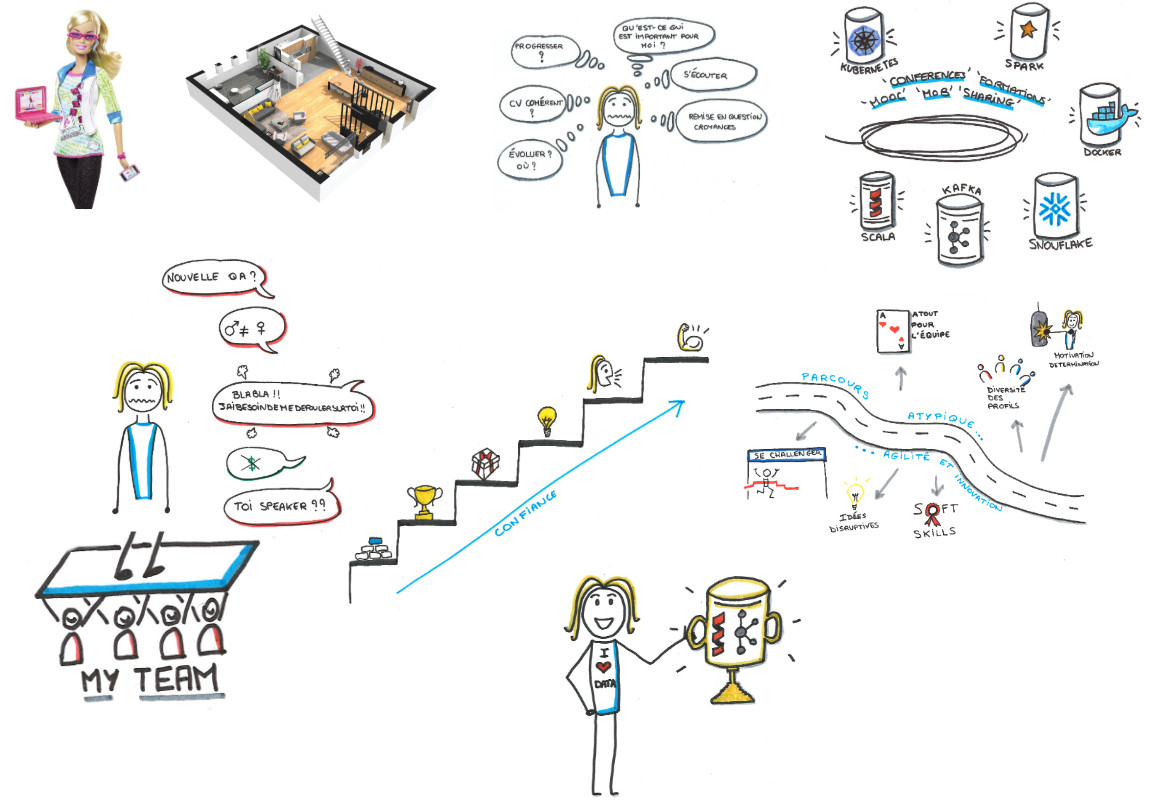 PROGRESSER
?
QU'EST-CE QUI
EST IMPORTANT POUR
MOI ?
S'ÉCOUTER
CV COHÉRENT
?
REMISE EN QUESTION
CROYANCES
ÉVOLUER ?
OÙ ?
KUBERNETES
SPARK
'CONFERENCES' 'FORMATIONS'
'MOOC' 'MOB' 'SHARING'
DOCKER
SCALA
KAFKA
SNOWFLAKE
NOUVELLE QA ?
♂ ≠ ♀
BLABLA !!
J'AIBESOINDEMEDEFOULERASURTOI !!
$
TOI SPEAKER ??
MY TEAM
CONFIANCE
A
A
ATOUT
POUR
L'ÉQUIPE
MOTIVATION
DETERMINATION
DIVERSITÉ
DES
PROFILS
PARCOURS
ATYPIQUE...
... AGILITÉ ET INNOVATION
SE CHALLENGER
IDÉES
DISRUPTIVES
SOFT
SKILLS
I
DATA